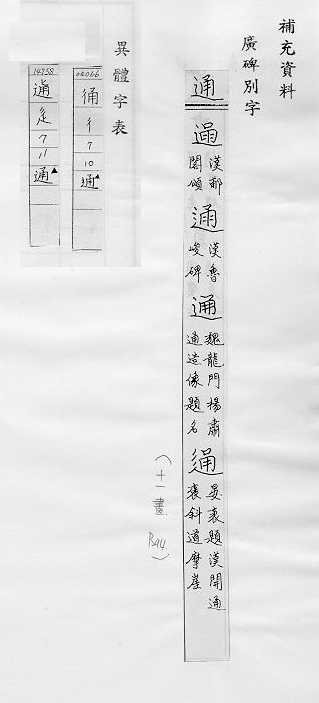 補充資料
廣碑別字
通
漢郙閣頌
漢魯峻碑
魏龍門楊肅通造像題名
晏袤題漢開通褒斜道摩崖
(十一畫 P.94)
異體字表
彳
7
10
通▲
14958
辵
7
11
通▲